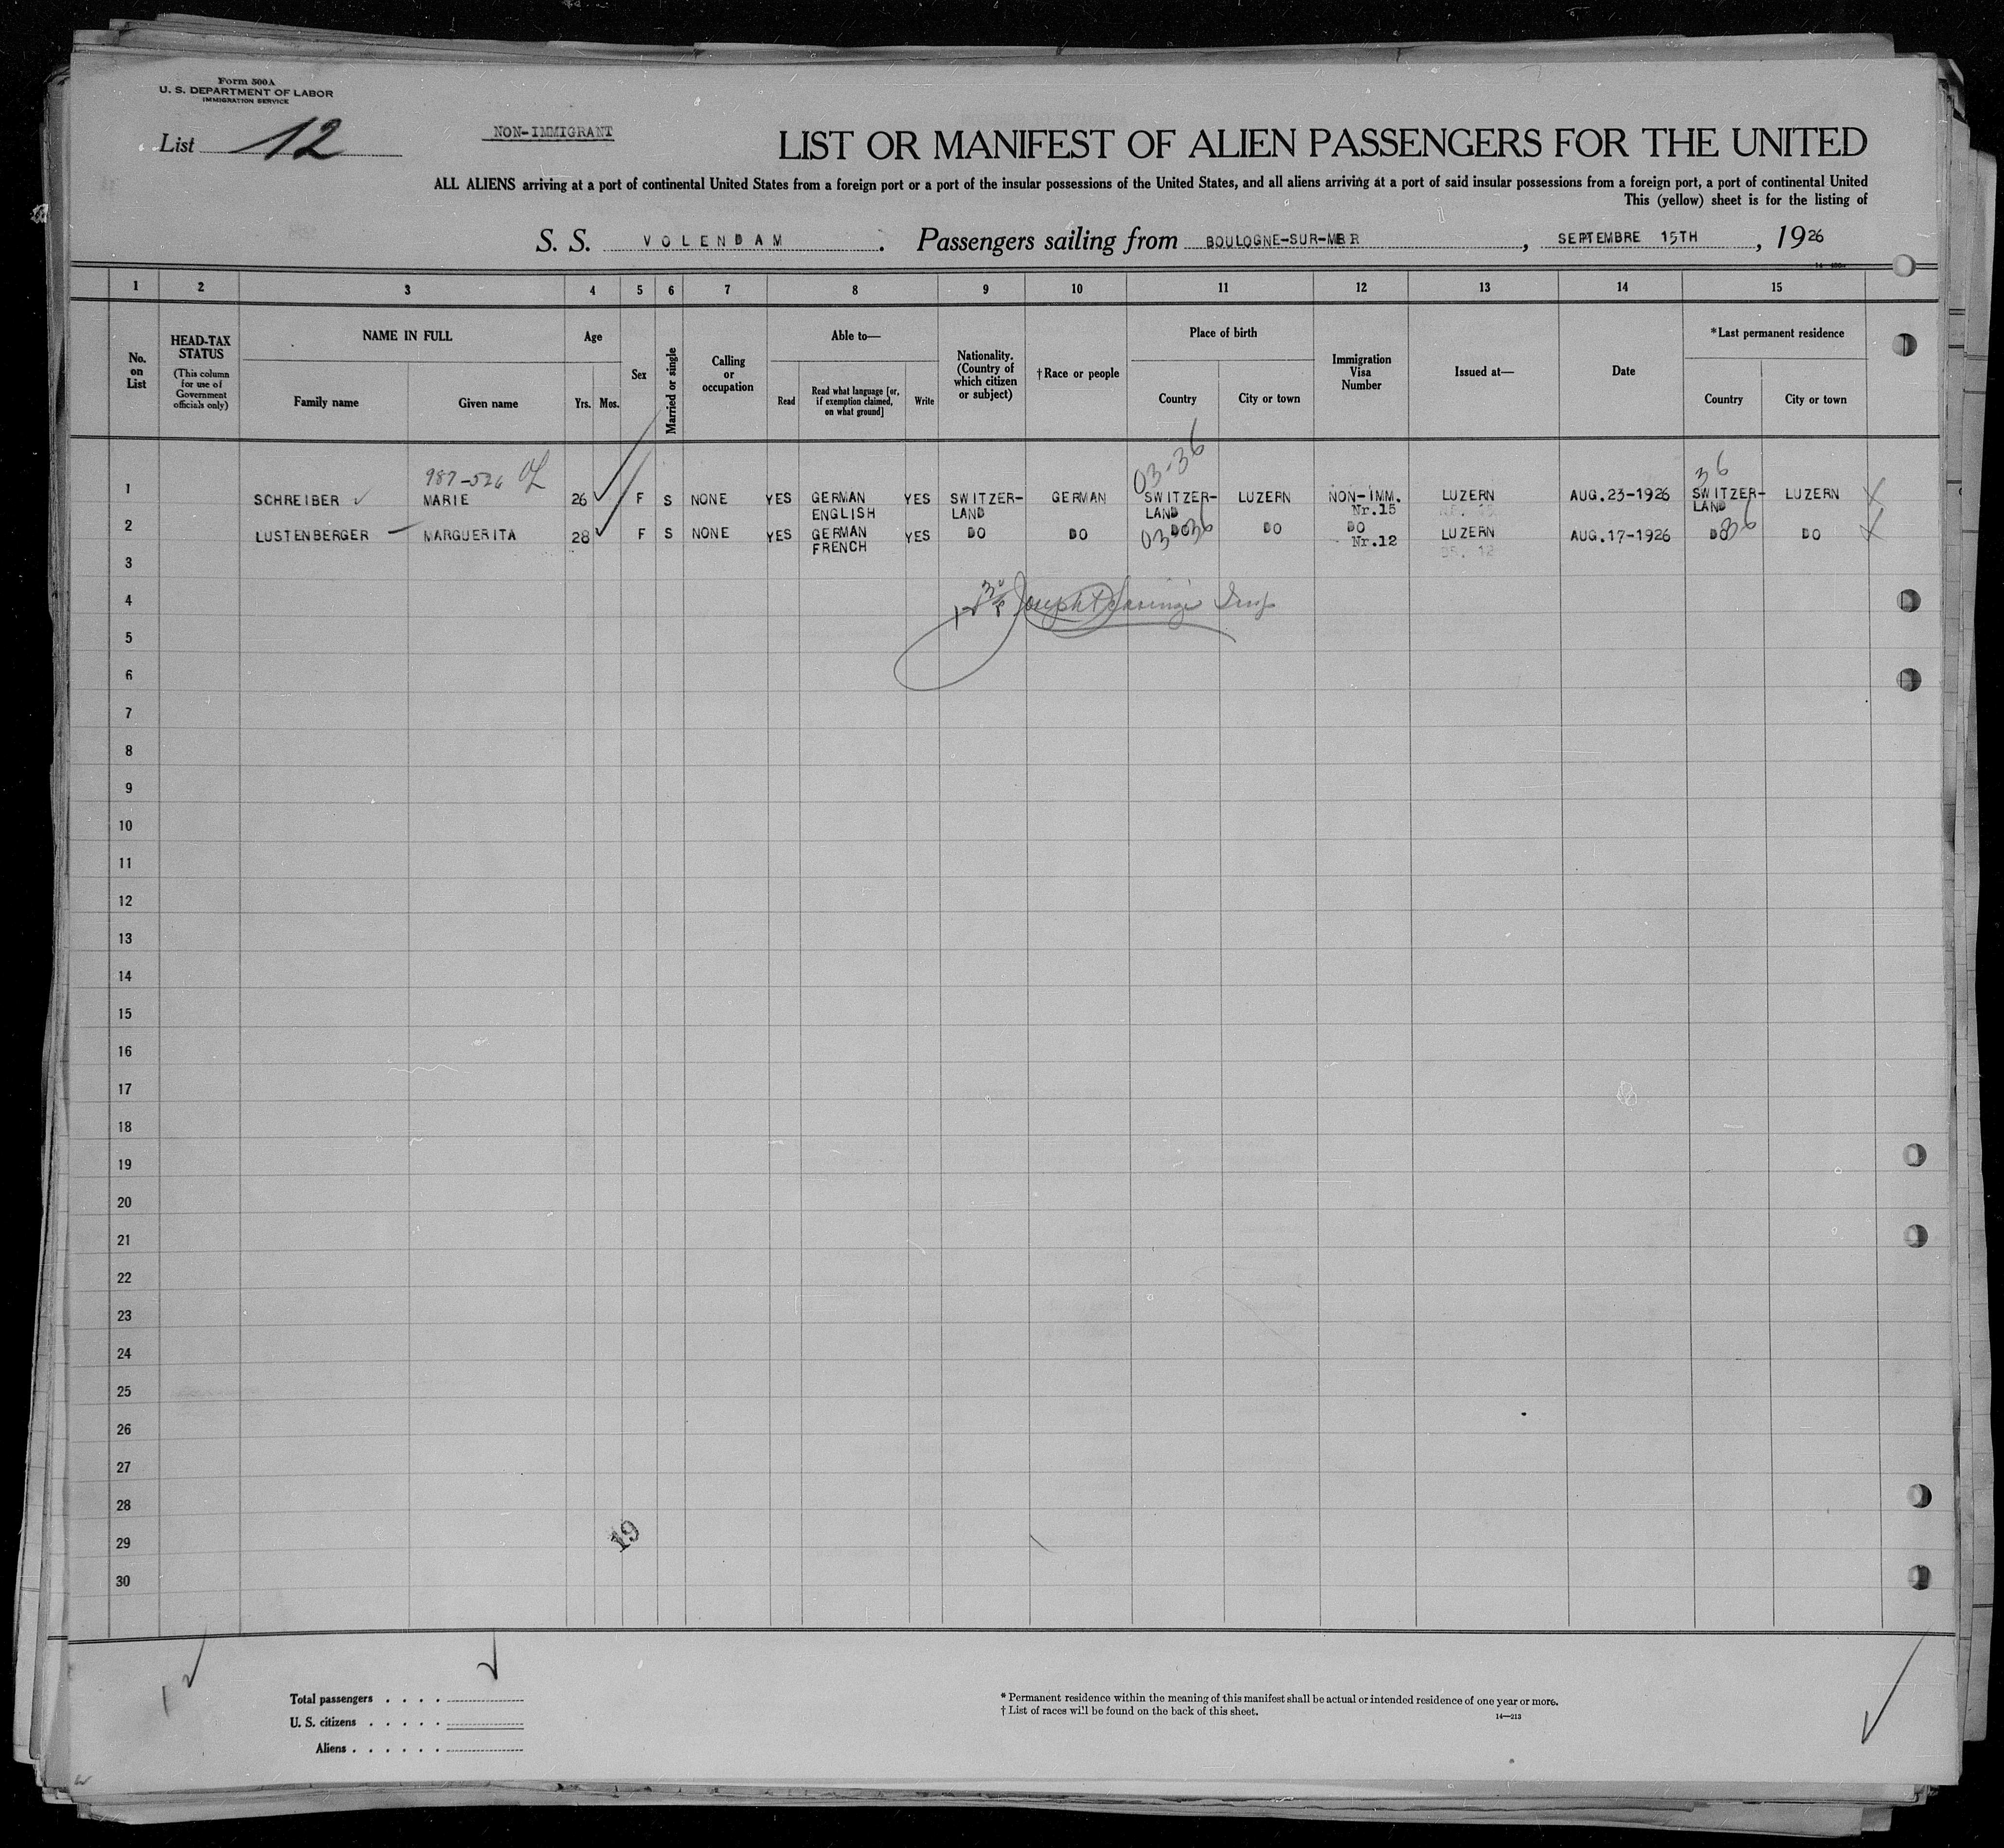 Form 500A
U. S. DEPARTMENT OF LABOR
IMMIGRATION SERVICE
List 12
NON-IMMIGRANT
LIST OR MANIFEST OF ALIEN PASSENGERS FOR THE UNITED
ALL ALIENS arriving at a port of continental United States from a foreign port or a port of the insular possessions of the United States, and all aliens arriving at a port of said insular possessions from a foreign port, a port of continental United
This (yellow) sheet is for the listing of
S. S. VOLENDAM. Passengers sailing from BOULOGNE-SUR-MER, SEPTEMBRE 15TH, 1926
1 2 3 4 5 6 7 8 9 10 11 12 13 14 15
No. on List
HEAD-TAX STATUS
(This column for use of Government officials only)
NAME IN FULL
Family name
Given name
Age
Yrs. Mos.
Sex
Married or single
Calling or occupation
Able to—
Read
Read what language [or, if exemption claimed, on what ground]
Write
Nationality. (Country of which citizen or subject)
†Race or people
Place of birth
Country
City or town
Immigration Visa Number
Issued at—
Date
*Last permanent residence
Country
City or town
987-526 03-36 36
1 SCHREIBER MARIE 26 F S NONE YES GERMAN YES SWITZER- GERMAN SWITZER- LUZERN NON-IMM. LUZERN AUG.23-1926 SWITZER- LUZERN
ENGLISH LAND LAND Nr.15 LAND
2 LUSTENBERGER MARGUERITA 28 F S NONE YES GERMAN YES DO DO 03 DO 36 DO DO LUZERN AUG.17-1926 DO 36 DO
FRENCH Nr.12
3
4 Joseph Insp
5
6
7
8
9
10
11
12
13
14
15
16
17
18
19
20
21
22
23
24
25
26
27
28
29
19
30
Total passengers . . . .
U. S. citizens . . . . .
Aliens . . . . . .
* Permanent residence within the meaning of this manifest shall be actual or intended residence of one year or more.
† List of races will be found on the back of this sheet.
14—213